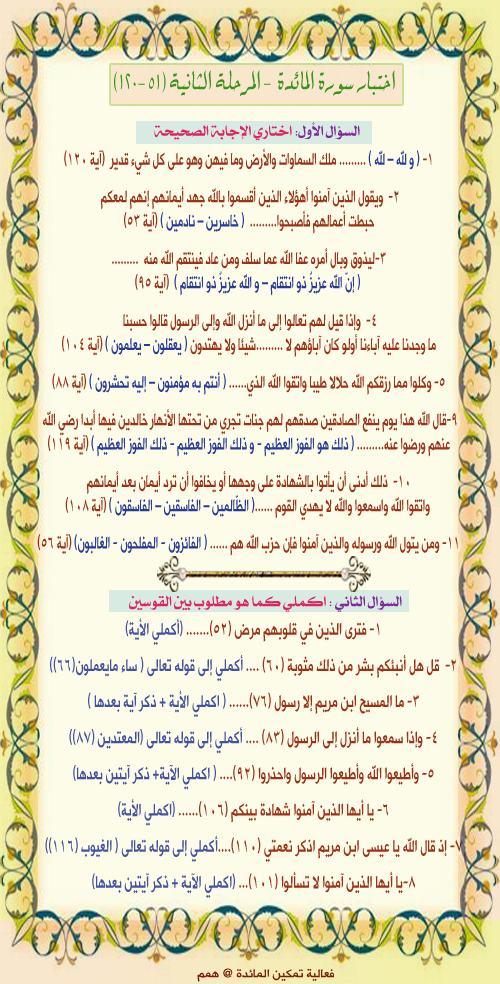 اختبار سورة المائدة - المرحلة الثانية (٥١ -١٢٠)
السؤال الأول: اختاري الإجابة الصحيحة
١- ( و لله – لله ) ......... ملك السماوات والأرض وما فيهن وهو على كل شيء قدير (آية ١٢٠)
٢- ويقول الذين آمنوا أهؤلاء الذين أقسموا بالله جهد أيمانهم إنهم لمعكم
حبطت أعمالهم فأصبحوا......... ( خاسرين – نادمين ) (آية ٥٣)
٣-ليذوق وبال أمره عفا الله عما سلف ومن عاد فينتقم الله منه .........
( إنّ الله عزيزٌ ذو انتقام – و الله عزيزٌ ذو انتقام ) (آية ٩٥)
٤- وإذا قيل لهم تعالوا إلى ما أنزل الله وإلى الرسول قالوا حسبنا
ما وجدنا عليه آباءنا أولو كان آباؤهم لا .........شيئا ولا يهتدون ( يعقلون – يعلمون ) (آية ١٠٤)
٥- وكلوا مما رزقكم الله حلالا طيبا واتقوا الله الذي...... ( أنتم به مؤمنون – إليه تحشرون ) (آية ٨٨)
٩-قال الله هذا يوم ينفع الصادقين صدقهم لهم جنات تجري من تحتها الأنهار خالدين فيها أبدا رضي الله
عنهم ورضوا عنه......... ( ذلك هو الفوز العظيم - و ذلك الفوز العظيم - ذلك الفوز العظيم ) (آية ١١٩)
١٠- ذلك أدنى أن يأتوا بالشهادة على وجهها أو يخافوا أن ترد أيمان بعد أيمانهم
واتقوا الله واسمعوا والله لا يهدي القوم ......( الظّالمين – الفاسقين – الفاسقون ) (آية ١٠٨)
١١- ومن يتول الله ورسوله والذين آمنوا فإن حزب الله هم ...... ( الفائزون - المفلحون - الغالبون) (آية ٥٦)
السؤال الثاني : اكملي كما هو مطلوب بين القوسين
١- فترى الذين في قلوبهم مرض (٥٢)....... (أكملي الأية)
٢- قل هل أنبئكم بشر من ذلك مثوبة (٦٠) .... أكملي إلى قوله تعالى ( ساء مايعملون(٦٦))
٣- ما المسيح ابن مريم إلا رسول (٧٦)...... ( اكملي الأية + ذكر آية بعدها )
٤- وإذا سمعوا ما أنزل إلى الرسول (٨٣) .... أكملي إلى قوله تعالى (المعتدين (٨٧))
٥- وأطيعوا الله وأطيعوا الرسول واحذروا (٩٢).... ( اكملي الآية+ ذكر آيتين بعدها)
٦- يا أيها الذين آمنوا شهادة بينكم (١٠٦)...... (اكملي الأية)
٧- إذ قال الله يا عيسى ابن مريم اذكر نعمتي (١١٠)....أكملي إلى قوله تعالى ( الغيوب (١١٦))
٨-يا أيها الذين آمنوا لا تسألوا (١٠١)... (اكملي الآية + ذكر آيتين بعدها)
فعالية تمكين المائدة @ همم